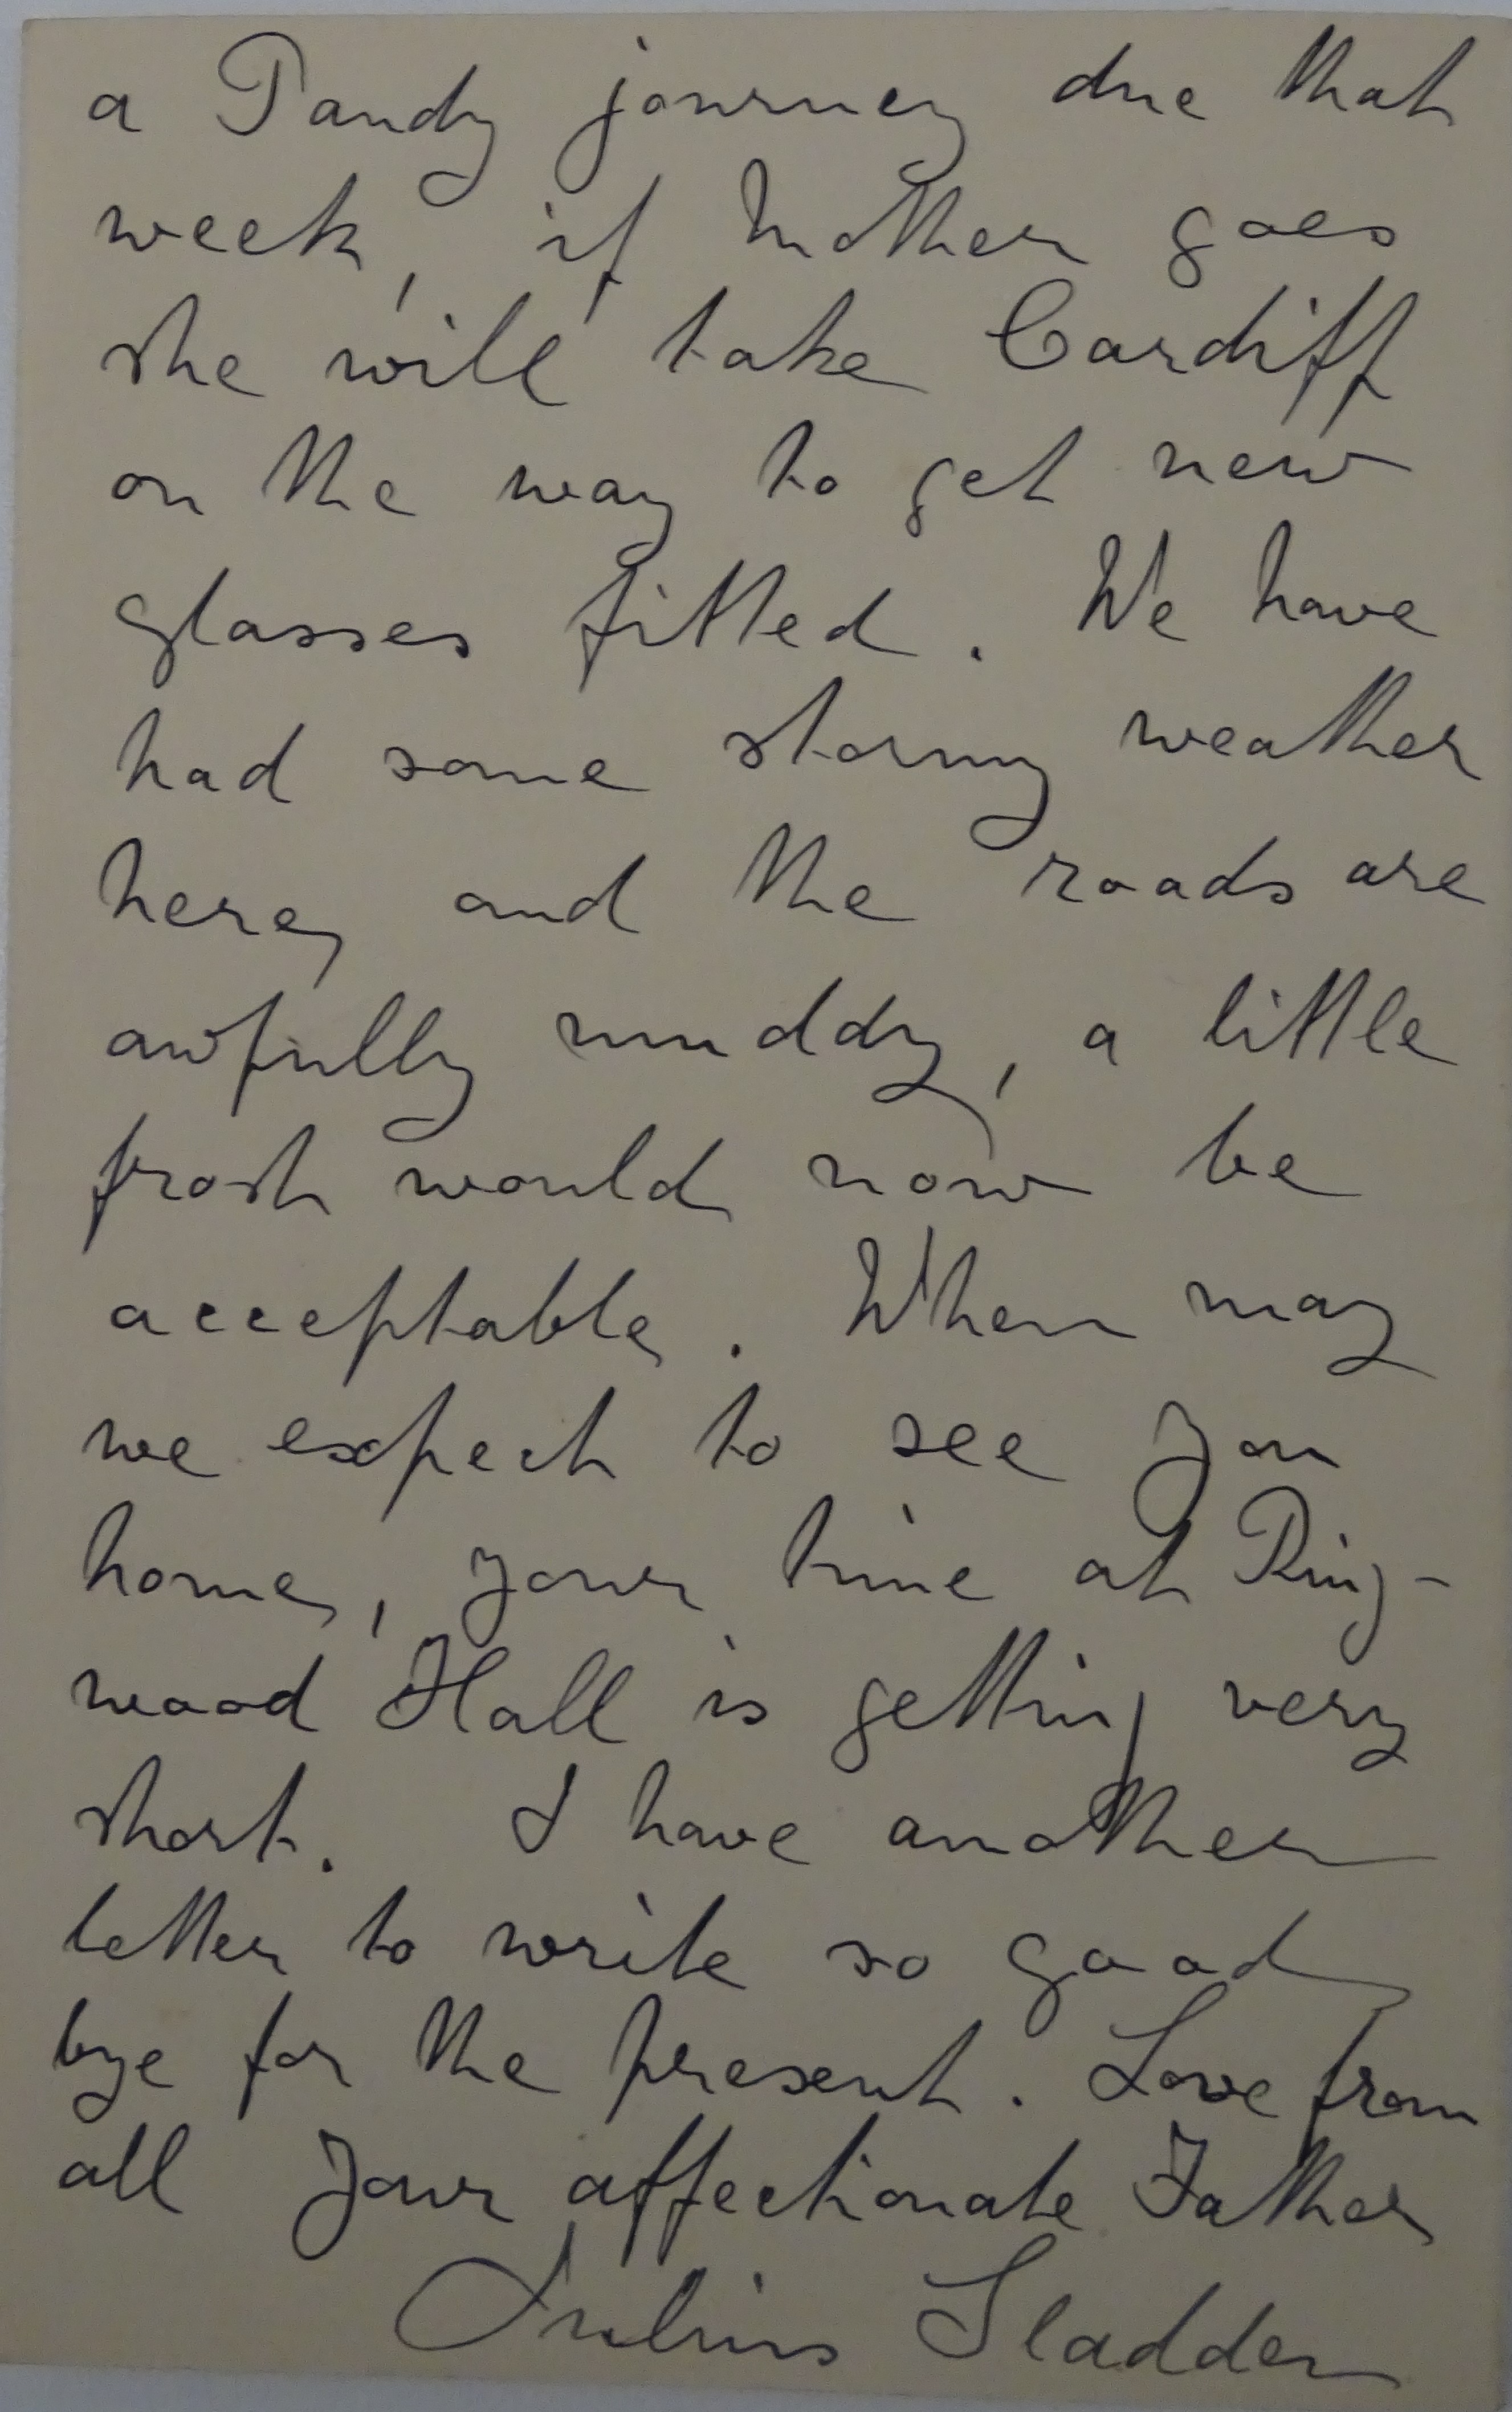 a Pandy journey due that
week, if Mother goes
she will take Cardiff
on the way to get new
glasses fitted. We have
had some stormy weather
here, and the roads are
awfully muddy, a little
frost would now be
acceptable. When may
we expect to see you
home, your time at Ring-
wood Hall is getting very
short. I have another
letter to write so good
bye for the present. Love from
all Your affectionate Father
Julius Sladden